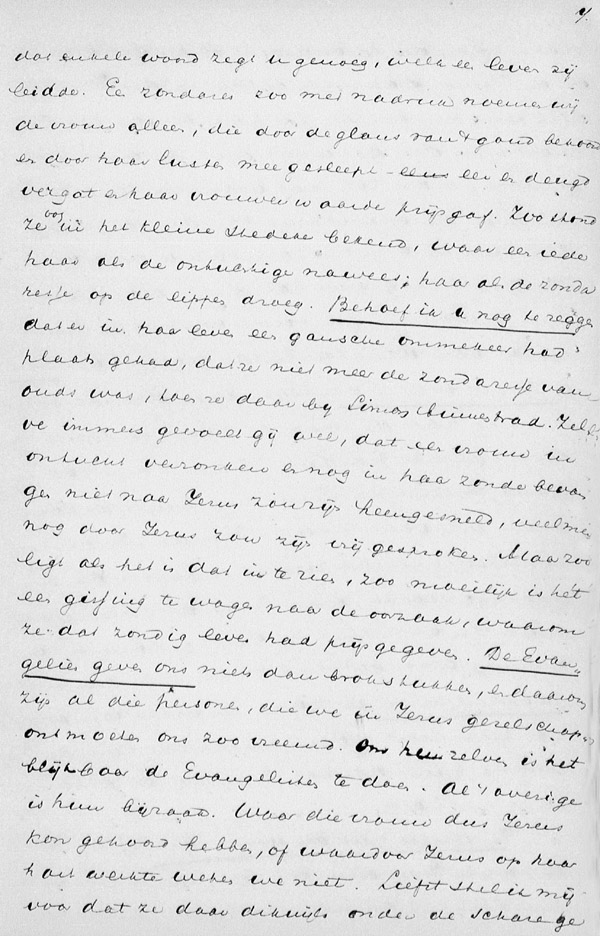 7.
dat enkele woord zegt u genoeg, welk een leven zij
leidde. Een zondares zoo met nadruk noemen wij
de vrouw alleen, die door de glans van 't goud bekoord
en door haar lusten meegesleept eens eer en deugd
vergat en haar vrouwenwaarde prijsgaf. Zoo stond
ze ook in het kleine stedeke bekend, waar een ieder
haar als de ontuchtige nawees; haar als de zonda
resse op de lippen droeg. Behoef ik u nog te zeggen
dat er in haar leven een gansche ommekeer had
plaats gehad, dat ze niet meer de zondaresse van
ouds was, toen ze daar by Simon binnentrad. Zelf
ve immers gevoelt gij wel, dat een vrouw in
ontucht verzonken en nog in haar zonde bevan
gen niet naar Jezus zou zijn heengesneld, veelmin
nog door Jezus zou zijn vrijgesproken. Maar zoo
ligt als het is dat in te zien, zoo moeilijk is het
een gissing te wagen naar de oorzaak, waarom
ze dat zondig leven had prijsgegeven. De Evan„
geliën geven ons niets dan brokstukken, en daarom
zijn al die personen, die we in Jezus gezelschap
ontmoeten ons zoo vreemd. Om hem zelven is het
blijkbaar de Evangelisten te doen. Al 't overige
is hun bijzaak. Waar die vrouw dus Jezus
kon gehoord hebben, of waardoor Jezus op haar
hart werkte weten we niet. Liefst stel ik mij
voor dat ze daar dikwijls onder de schare ge